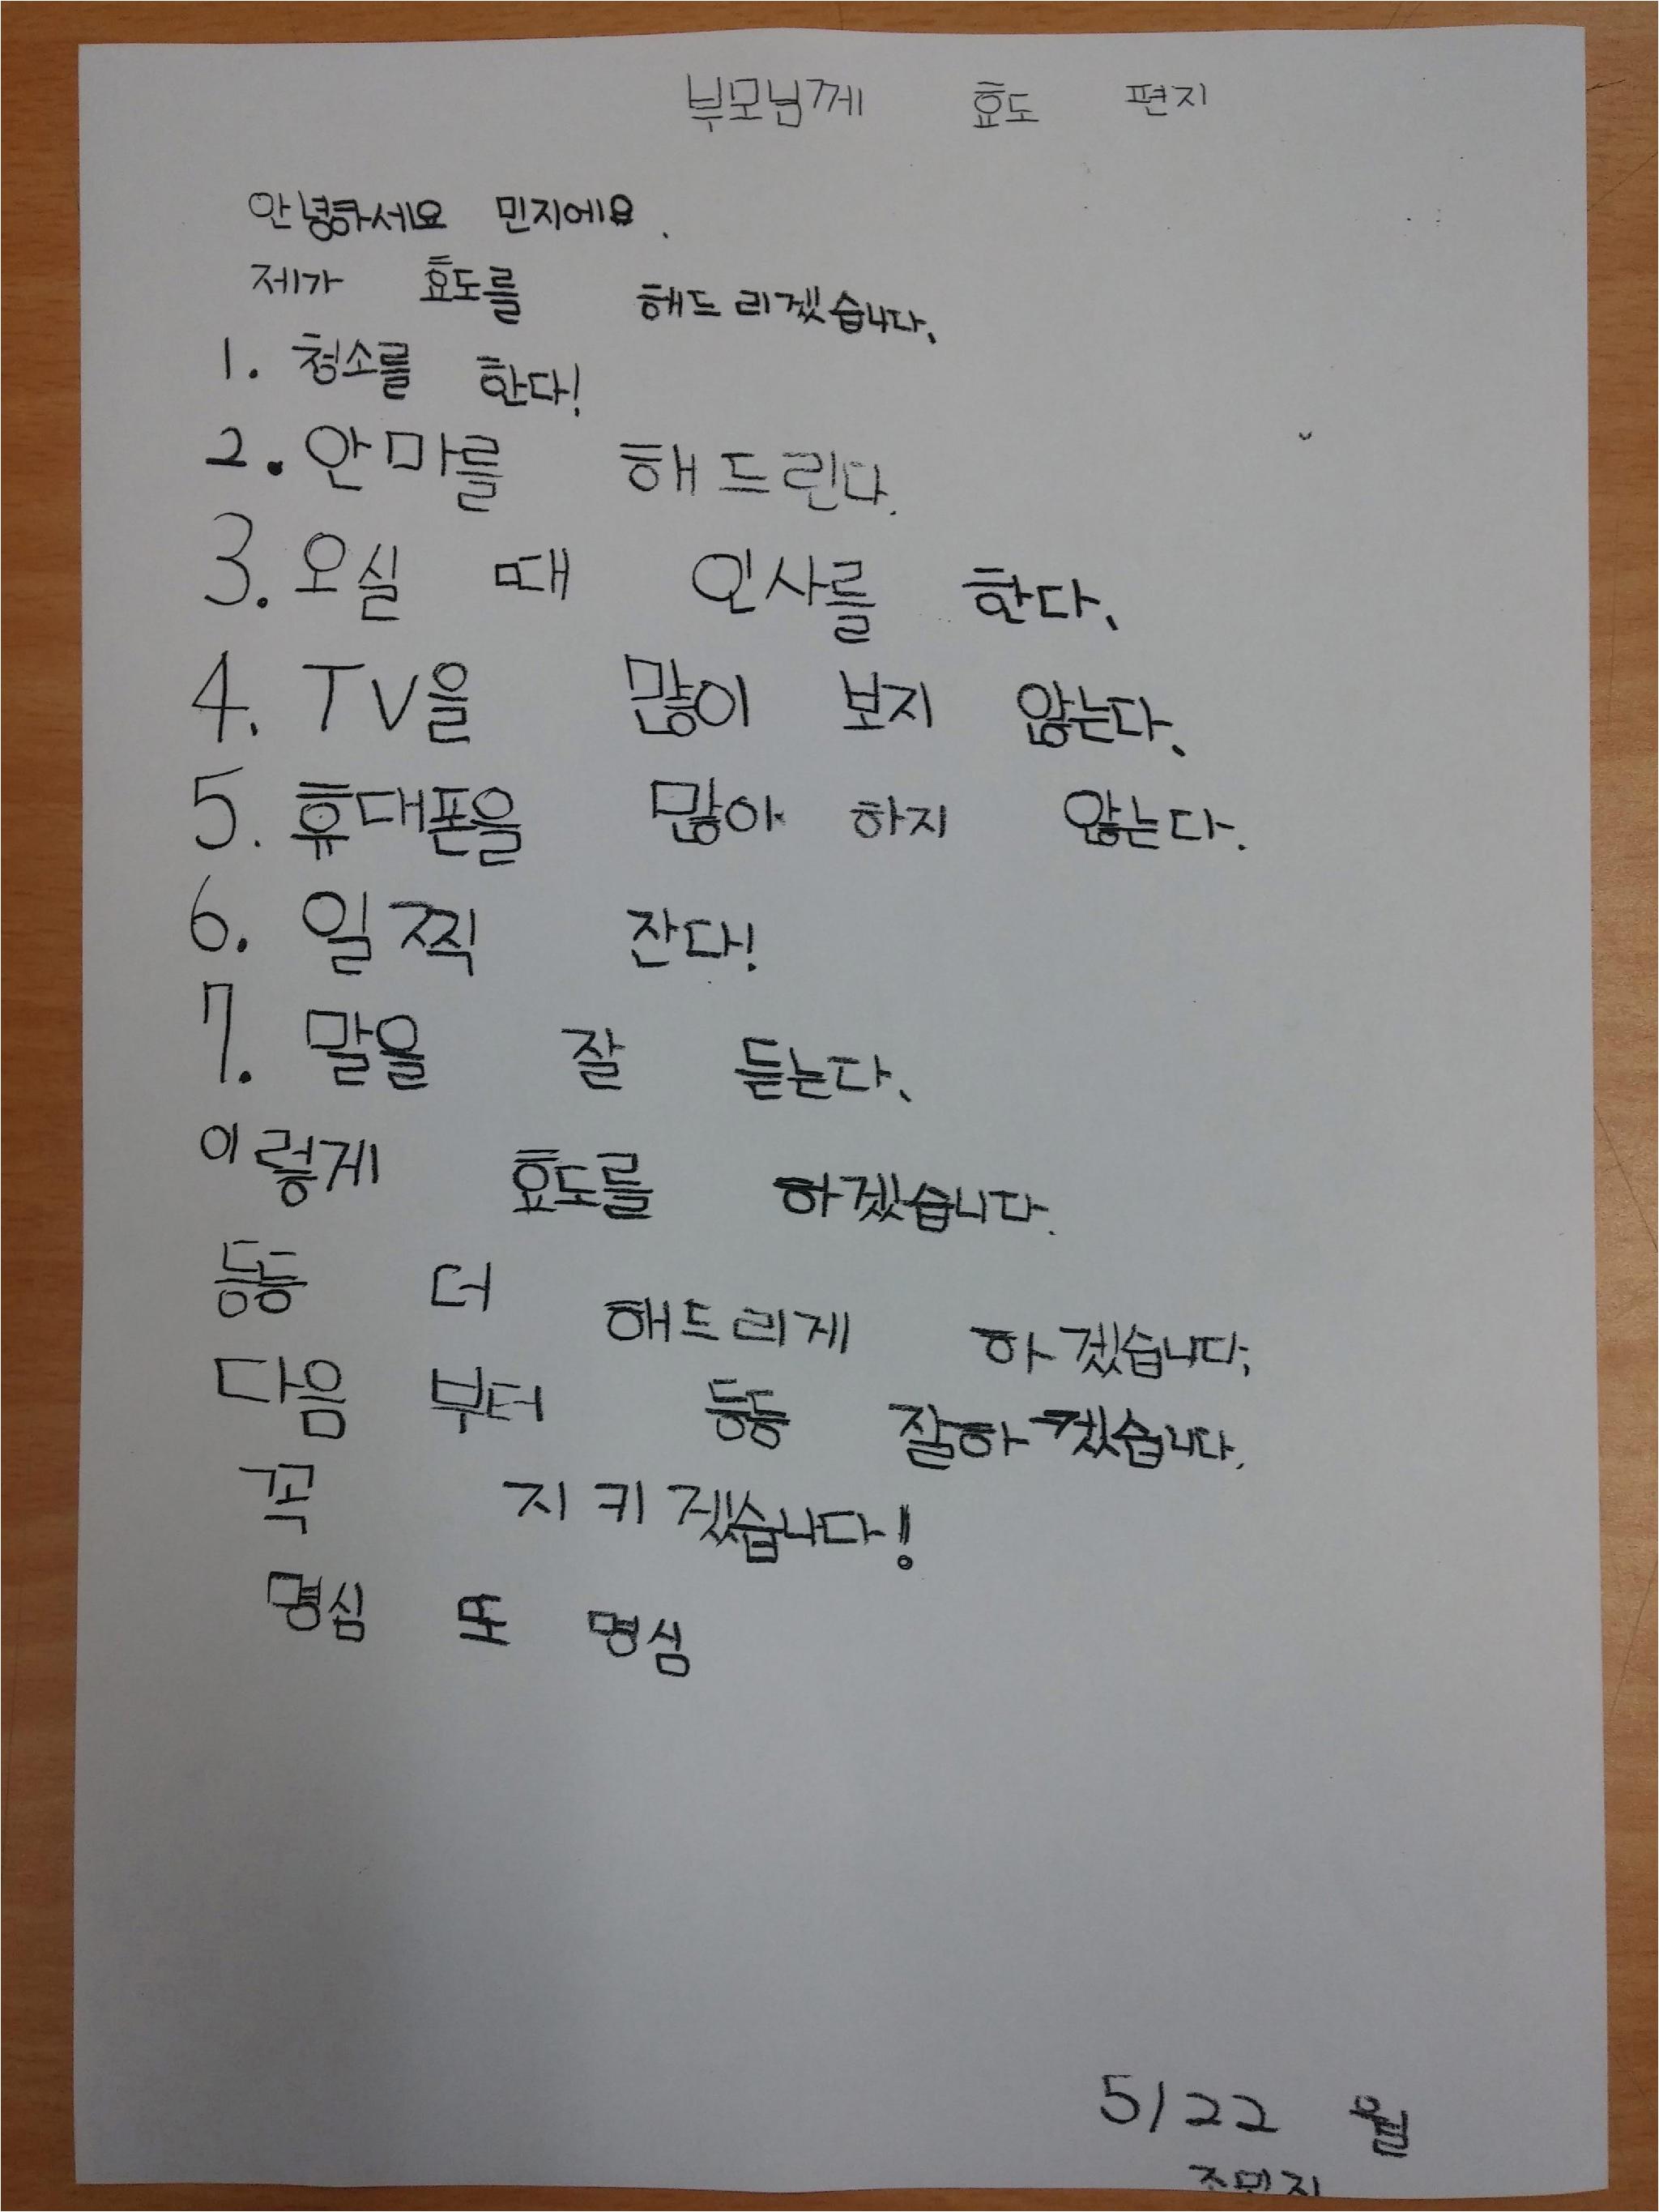 부모님께 효도 편지
안녕하세요 민지에요.
제가 효도를 해드리겠습니다.
1. 청소를 한다!
2. 안마를 해드린다.
3. 오실 때 인사를 한다.
4. TV을 많이 보지 않는다.
5. 휴대폰을 많아 하지 않는다.
6. 일찍 잔다!
7. 말을 잘 듣는다.
이렇게 효도를 하겠습니다.
등등 더 해드리게 하겠습니다.
다음 부터 등등 잘하겠습니다.
꼭 지키겠습니다!
명심 또 명심
5/22 월
조민지